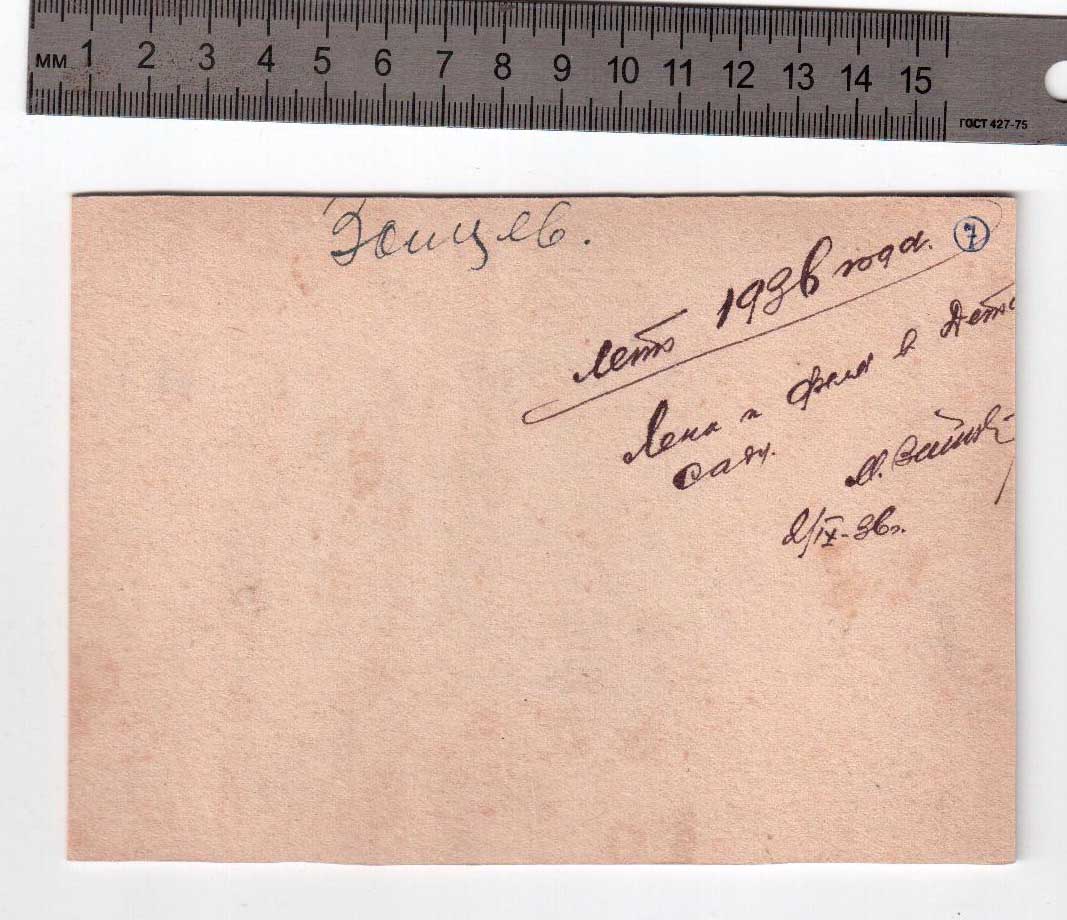 мм 1 2 3 4 5 6 7 8 9 10 11 12 13 14 15
ГОСТ 427-75
7
лето 1936 года.
Лена и в Детс
саду.
М.
2/IX-36г.